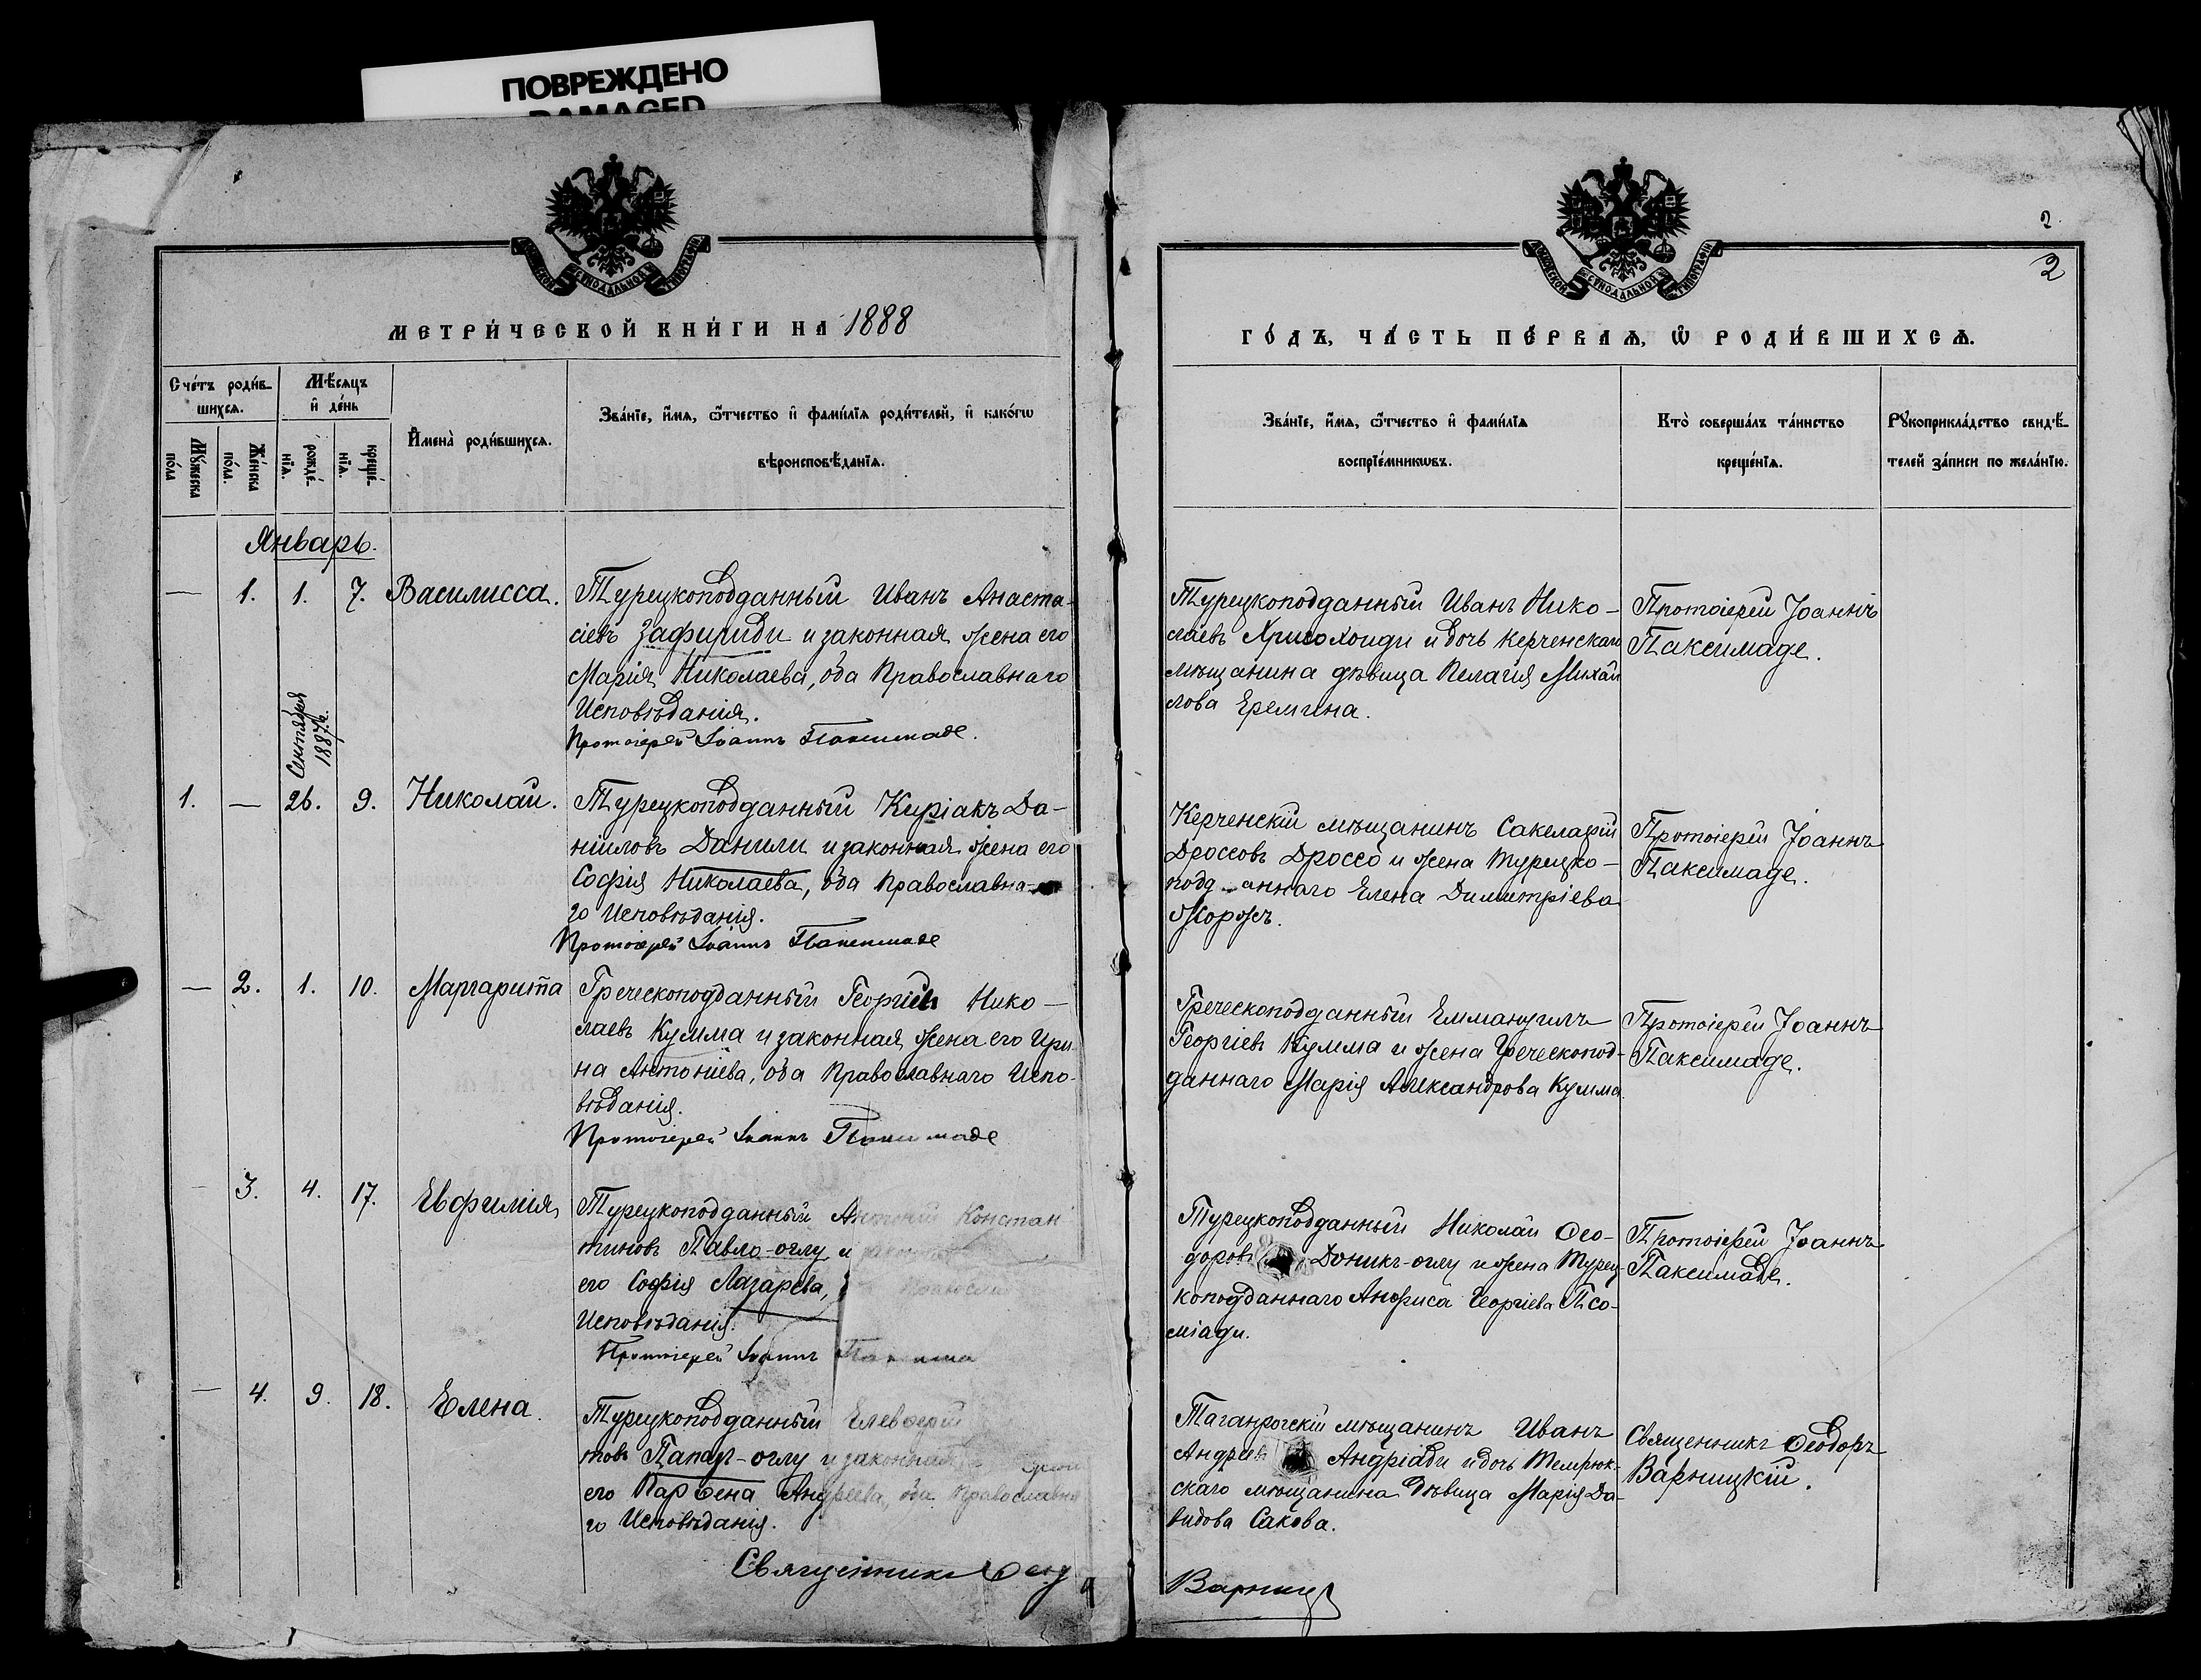 ПОВРЕЖДЕНО
DAMAGED
2
2
МЕТРИ́ЧЕСКОЙ КНИ́ГИ НА 1888
ГО́ДЪ, ЧА́СТЬ ПЕ́РВАѦ, Ѡ РОДИ́ВШИХСѦ.
Сче́тъ роди́в-
шихсѧ.
Мѣ́сѧцъ
и҆ де́нь
Мꙋ́жеска
по́ла
Же́нска
по́ла.
рожде́-
нїѧ.
креще́-
нїѧ.
И҆мена̀ роди́вшихсѧ.
Зва́нїе, и҆́мѧ, ѻ҆́тчество и҆ фами́лїѧ роди́телей, и҆ како́гѡ
вѣроисповѣ́данїѧ.
Зва́нїе, и҆́мѧ, ѻ҆́тчество и҆ фами́лїѧ
воспрїе́мникѡвъ.
Кто̀ соверша́лъ та́инство
креще́нїѧ.
Рꙋкоприкла́дство свидѣ́-
телей за́писи по жела́нїю.
Январь.
— 1. 1. 7. Василисса.
Турецкоподданный Иванъ Анаста-
сіевъ Зафириди и законная жена его
Марія Николаева, оба Православнаго
Исповѣданія.
Протоіерей Іоаннъ Паксимаде.
Турецкоподданный Иванъ Нико-
лаевъ Хрисохоиди и дочь Керченскаго
мѣщанина дѣвица Пелагія Михаи
лова Еремина.
Протоіерей Іоаннъ
Паксимаде.
Сентября
1887 г.
1. — 26. 9. Николай.
Турецкоподданный Киріакъ Да-
ніиловъ Данили и законная жена его
Софія Николаева, оба Православна-
го Исповѣданія.
Протоіерей Іоаннъ Паксимаде
Керченскій мѣщанинъ Сакеларій
Дроссовъ Дроссо и жена Турецко-
подд анного Елена Димитріева
Жоржъ.
Протоіерей Іоаннъ
Паксимаде.
— 2. 1. 10. Маргарита
Греческоподданный Георгій Нико-
лаевъ Кумма и законная жена его Ири
на Антоніева, оба Православнаго Испо-
вѣданія.
Протоіерей Іоаннъ Паксимаде
Греческоподданный Еммануилъ
Георгіевъ Кумма и жена Греческопод-
даннаго Марія Александрова Кумма.
Протоіерей Іоаннъ
Паксимаде.
— 3. 4. 17. Евфимія
Турецкоподданный Антоній Констан
тиновъ Павло-оглу и
его Софія Лазарева,
Исповѣданія.
Протоіерей Іоаннъ Паксима
Турецкоподданный Николай Ѳео-
доровъ Доникъ-оглу и жена Турец-
коподданнаго Анфиса Георгіева Псо-
міади.
Протоіерей Іоаннъ
Паксимаде.
— 4. 9. 18. Елена.
Турецкоподданный Елевѳерій
товъ и законная
его Парѳена Андреева, оба Православна
го Исповѣданія.
Священникъ Ѳеод
Таганрогскій мѣщанинъ Иванъ
Андреев Андріади и дочь Темрюк-
скаго мѣщанина дѣвица Марія Да-
видова Сакова.
Варниц
Священникъ Ѳеодоръ
Варницкій.